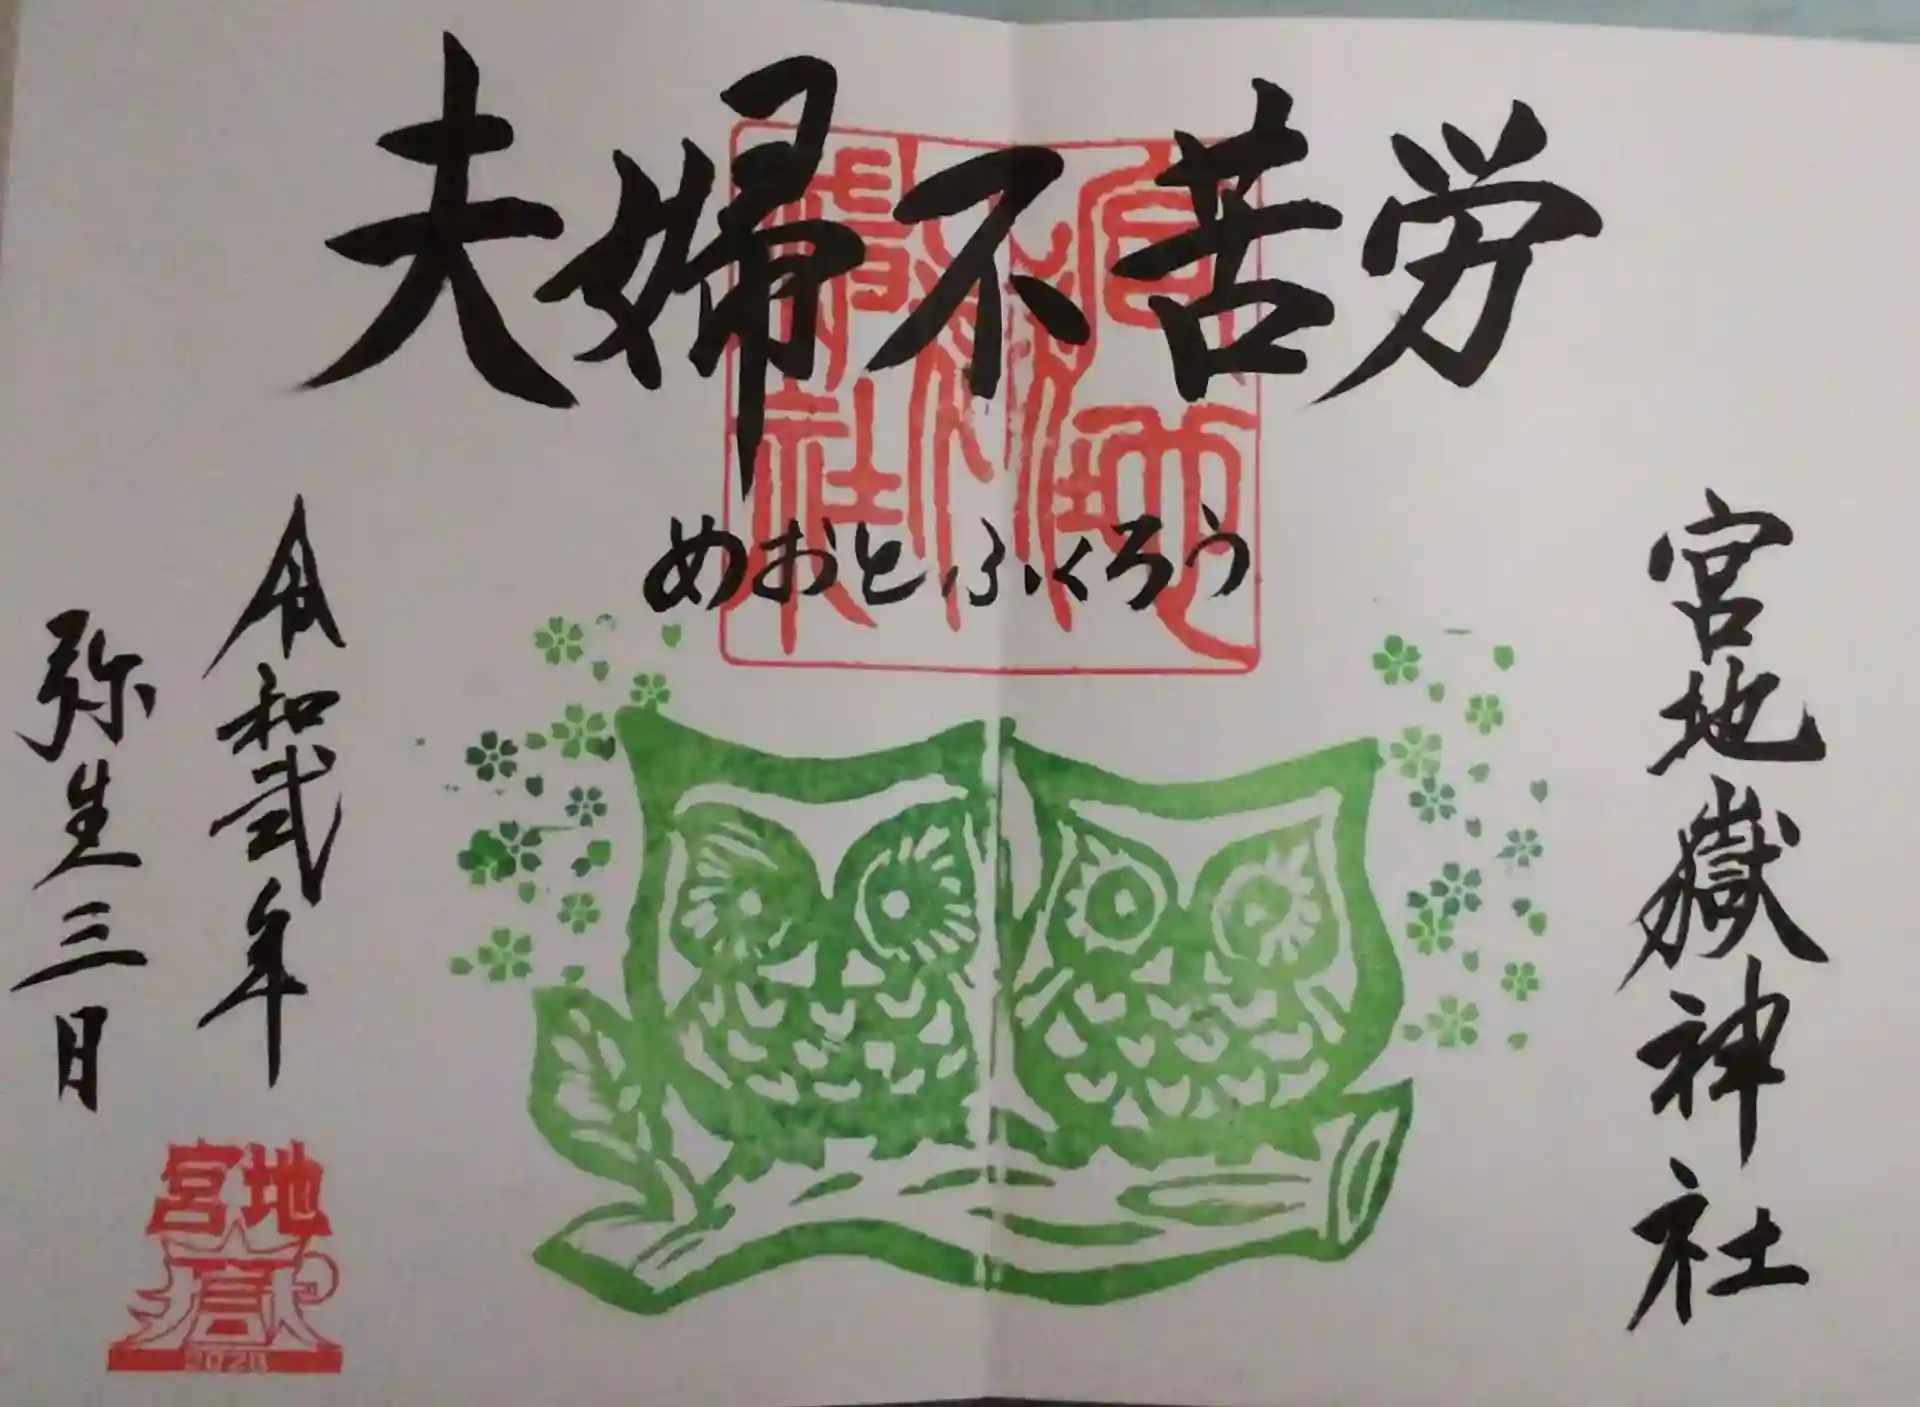 夫婦不苦労
めおとふくろう
宮地嶽神社
令和弐年
弥生三日
宮地嶽神社
宮地
嶽